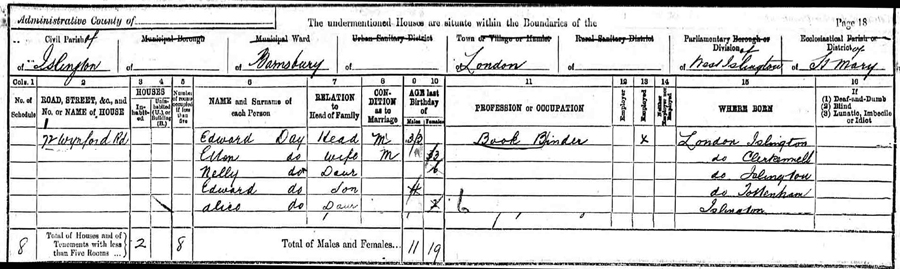 Administrative County of
The undermentioned Houses are situate within the Boundaries of the
Page 18
Civil Parish of
of Islington
Municipal Borough
of
Municipal Ward
of Barnsbury
Urban Sanitary District
of
Town or Village or Hamlet
of London
Rural Sanitary District
of
Parliamentary Borough or Division of
of West Islington
Ecclesiastical Parish or District of
of St Mary
Cols. 1 2 3 4 5 6 7 8 9 10 11 12 13 14 15 16
No. of Schedule
ROAD, STREET, &c., and No. or NAME of HOUSE
HOUSES
Inhabited
Uninhabited (U.), or Building (B.)
Number of rooms occupied if less than five
NAME and Surname of each Person
RELATION to Head of Family
CONDITION as to Marriage
AGE last Birthday of
Males
Females
PROFESSION or OCCUPATION
Employer
Employed
WHERE BORN
If (1) Deaf-and-Dumb (2) Blind (3) Lunatic, Imbecile or Idiot
72 Wynford Rd Edward Day Head M Book Binder x London Islington
Ellen do Wife M do Clerkenwell
Nelly do Daur do Islington
Edward do Son 4 do Tottenham
Alice do Daur Islington
8 Total of Houses and of Tenements with less than Five Rooms ... 2 8 Total of Males and Females... 11 19